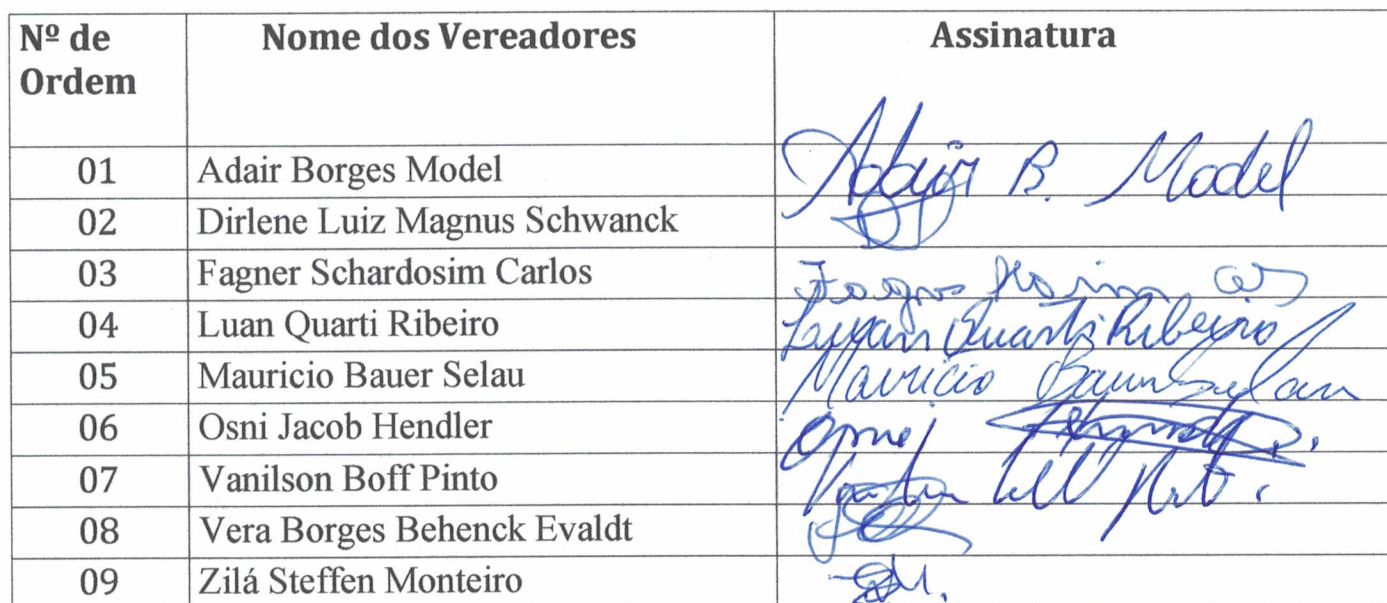 Nº de Ordem Nome dos Vereadores Assinatura
01 Adair Borges Model Adair B. Model
02 Dirlene Luiz Magnus Schwanck
03 Fagner Schardosim Carlos
04 Luan Quarti Ribeiro Luan Quarti Ribeiro
05 Mauricio Bauer Selau Mauricio Bauer Selau
06 Osni Jacob Hendler
07 Vanilson Boff Pinto
08 Vera Borges Behenck Evaldt
09 Zilá Steffen Monteiro